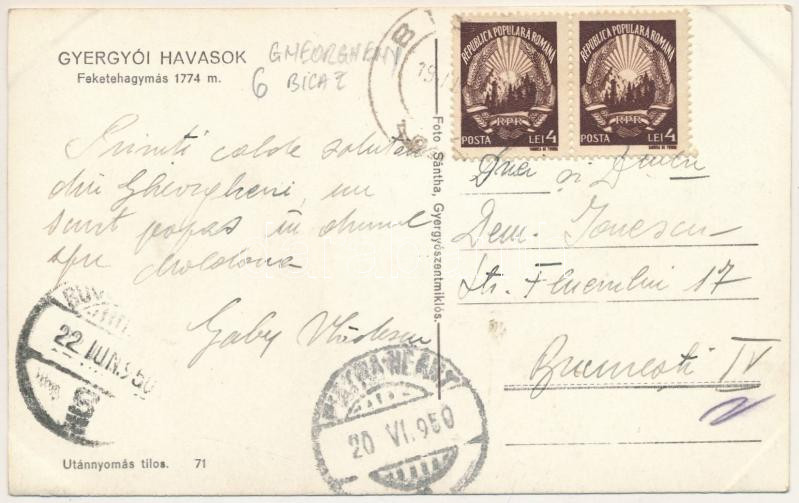 GYERGYÓI HAVASOK
Feketehagymás 1774 m.
GHEORGHENI
6 BICAZ
REPUBLICA POPULARA ROMANA
RPR
POSTA LEI 4
REPUBLICA POPULARA ROMANA
RPR
POSTA LEI 4
Primiti calde salutări
din Gheorgheni, un
scurt popas în drumul
spre Moldova
Gaby
Foto Sántha, Gyergyószentmiklós.
și
Dem. Ionescu
Str. 17
București IV
22 IUN. 950
PIATRA NEAMȚ
20 VI. 950
Utánnyomás tilos. 71